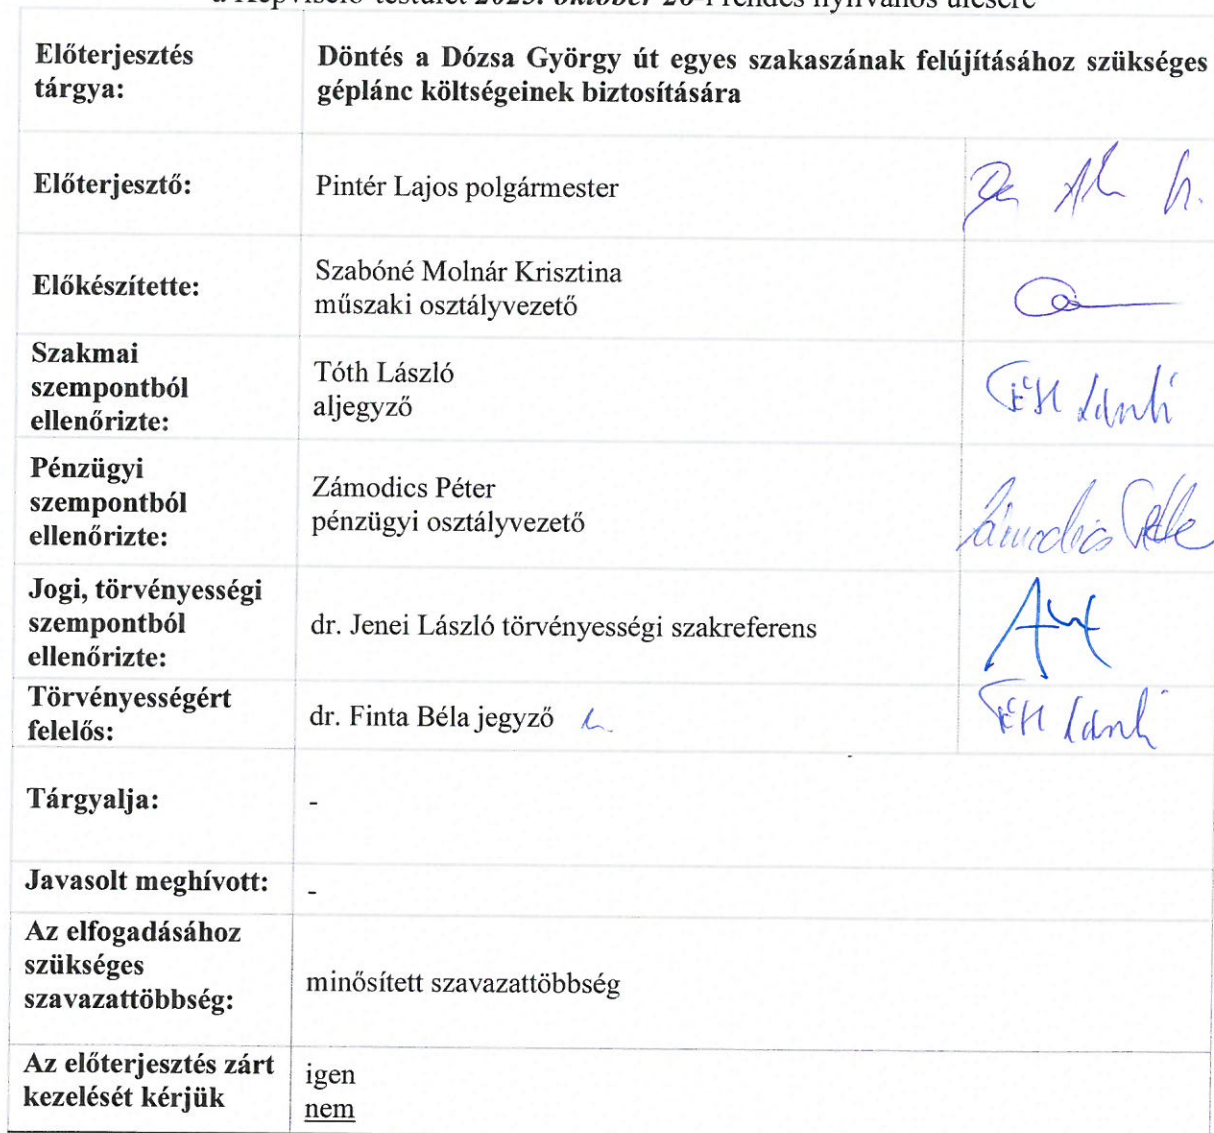 Előterjesztés
tárgya:
Döntés a Dózsa György út egyes szakaszának felújításához szükséges
géplánc költségeinek biztosítására
Előterjesztő:
Pintér Lajos polgármester
Előkészítette:
Szabóné Molnár Krisztina
műszaki osztályvezető
Szakmai
szempontból
ellenőrizte:
Tóth László
aljegyző
Pénzügyi
szempontból
ellenőrizte:
Zámodics Péter
pénzügyi osztályvezető
Zámodics Péter
Jogi, törvényességi
szempontból
ellenőrizte:
dr. Jenei László törvényességi szakreferens
Törvényességért
felelős:
dr. Finta Béla jegyző
Tárgyalja:
-
Javasolt meghívott:
-
Az elfogadásához
szükséges
szavazattöbbség:
minősített szavazattöbbség
Az előterjesztés zárt
kezelését kérjük
igen
nem